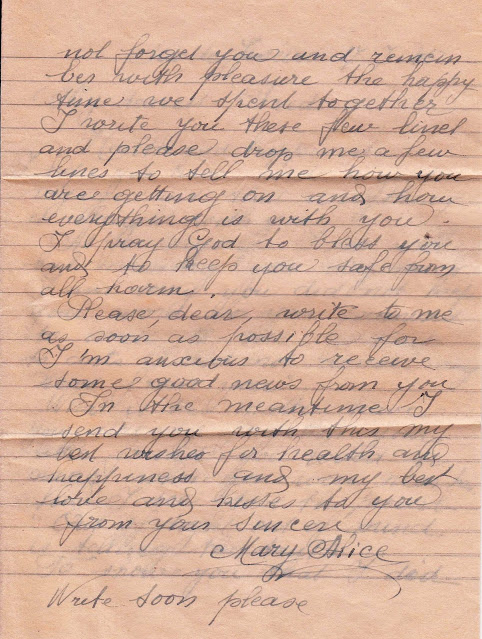 not forget you and remem
ber with pleasure the happy
time we spent together
I write you these few lines
and please drop me a few
lines to tell me how you
are getting on and how
everything is with you.
I pray God to bless you
and to keep you safe from
all harm.
Please, dear, write to me
as soon as possible for
I'm anxious to receive
some good news from you
In the meantime I
send you with this my
best wishes for health and
happiness and my best
love and kisses to you
from your sincere
Mary Alice
Write soon please